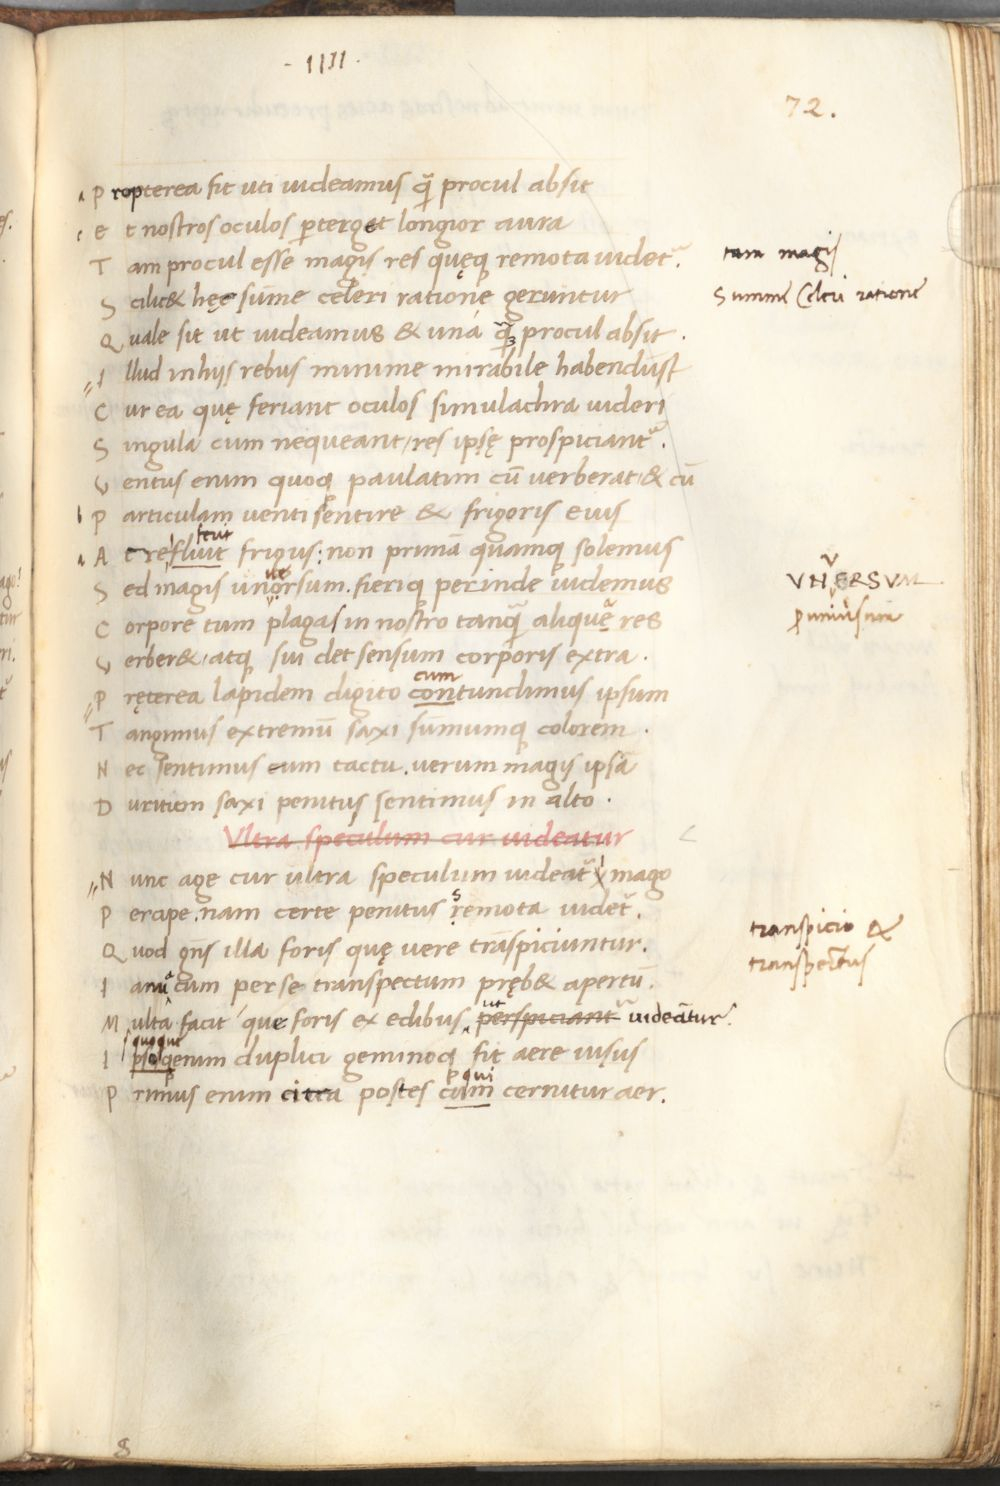 - IIII .
72.
P ropterea fit uti uideamus q̃ procul absit
E t nostros oculos ꝑterget longior aura
T am procul esse magis res quęq; remota uidet᷑.
tam magis
S cilic& hęc sũme celeri ratione geruntur
Summe Celeri ratione
Q uale sit ut uideamus & una q̃ procul absit .
I llud in hijs rebus minime mirabile habendũst
C ur ea quę feriant oculos simulachra uideri
S ingula cum nequeant / res ipsę prospiciant᷑.
V entus enim quoq; paulatim cũ uerberat / & cũ
P articulam uenti sentire & frigoris eius
ferit
A c refluit frigus: non primã quamq; solemus
S ed magis unorsum. fieriq; perinde uidemus
ue
VNVERSVM
C orpore tum plagas in nostro tanq̃ aliquę res
V erber& / atq; sui det sensum corporis extra .
cum
P ręterea lapidem digito contundimus ipsum
T angimus extremũ saxi sũmumq; colorem .
N ec sentimus eum tactu . uerum magis ipsã
D uritiem saxi penitus sentimus in alto .
Vltra speculum cur uideatur
N unc age cur ultra speculum uideat᷑ imago
P ercipe . nam certe penitus remota uidet᷑.
s
Q uod gns illa foris quę uere trãspiciuntur.
transpicio &
transpectus
I anua cum per se transpectum pręb& apertũ.
M ulta facit que foris ex edibus ut perspiciant᷑ uideãtur.
quoque
I psoq; enim duplici geminoq; fit aere uisus
p qui
P rimus enim citra postes cum cernitur aer.
8